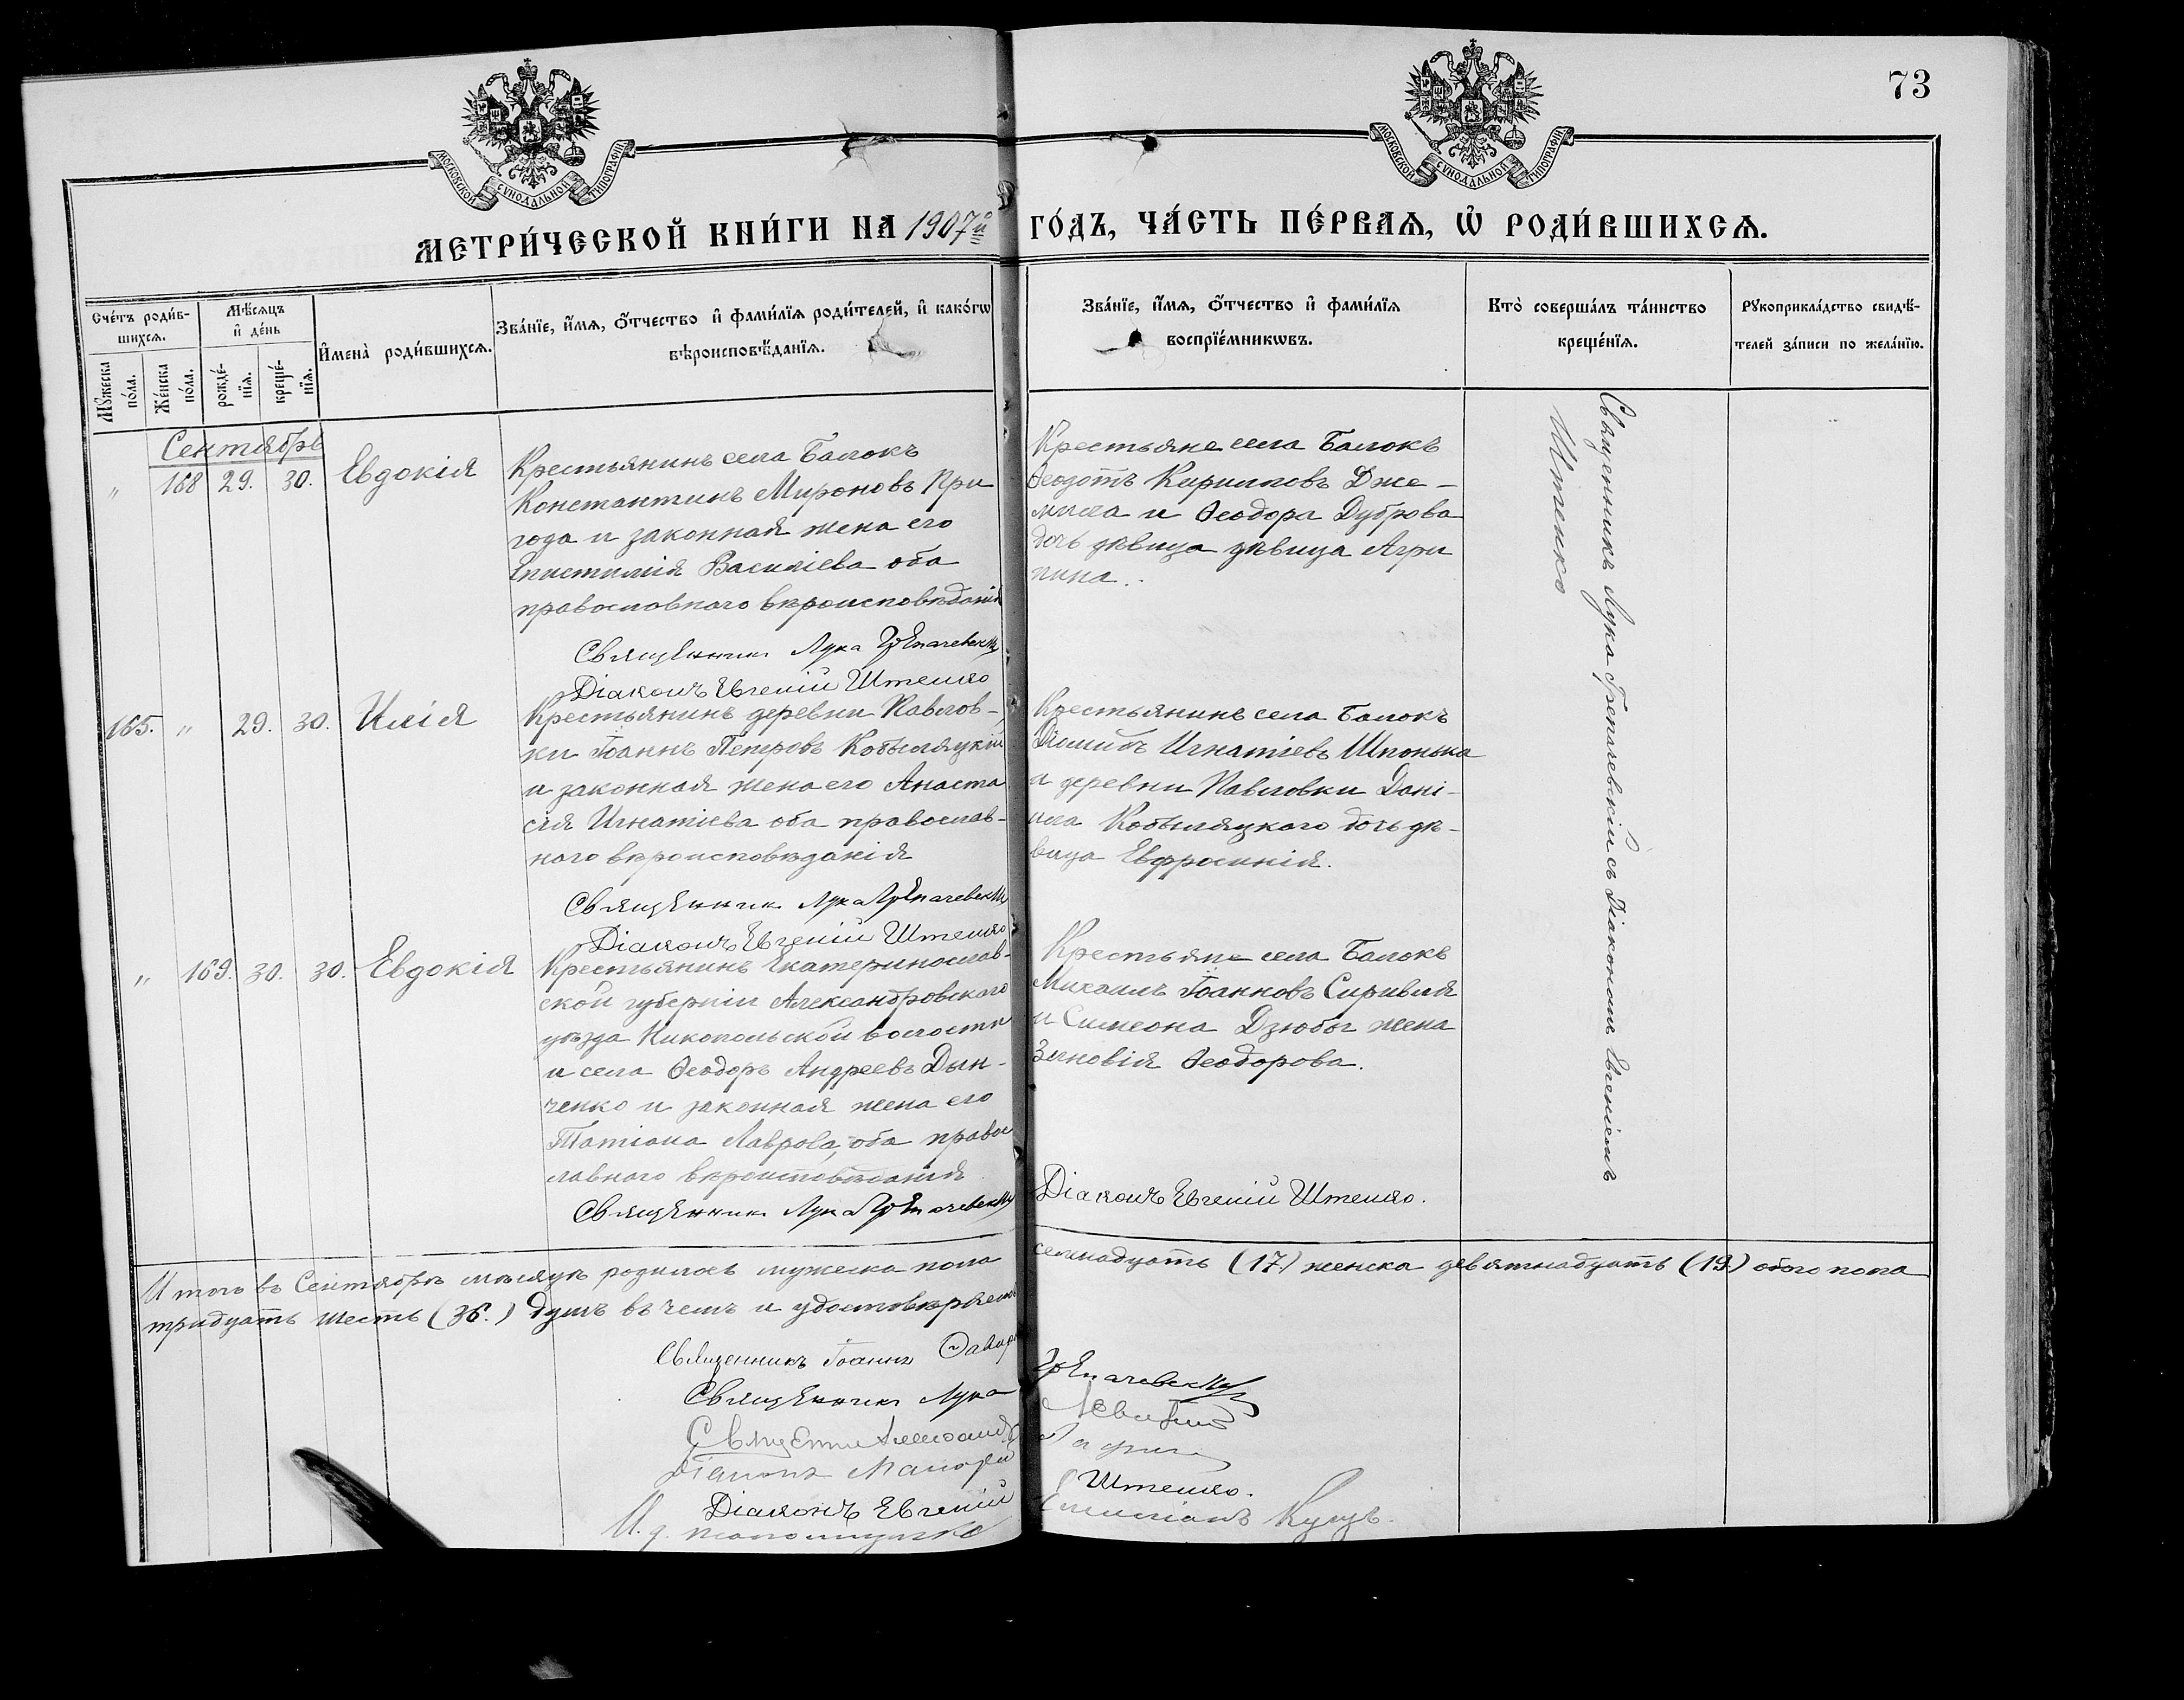 73
МОСКОВСКОЙ СѴНОДАЛЬНОЙ ТИПОГРАФІИ
МОСКОВСКОЙ СѴНОДАЛЬНОЙ ТИПОГРАФІИ
МЕТРИ́ЧЕСКОЙ КНИ́ГИ НА 1907й ГО́ДЪ, ЧА́СТЬ ПЕ́РВАѦ, Ѡ РОДИ́ВШИХСѦ.
Сче́тъ роди́в-
шихсѧ.
Мꙋ́жеска
по́ла.
Же́нска
по́ла.
Мѣ́сѧцъ
и де́нь
рожде́-
нїѧ.
креще́-
нїѧ.
Имена̀ роди́вшихсѧ.
Зва́нїе, и́мѧ, о́тчество и фами́лїѧ роди́телей, и како́гѡ
вѣроисповѣ́данїѧ.
Зва́нїе, и́мѧ, о́тчество и фами́лїѧ
воспрїе́мникѡвъ.
Кто̀ соверша́лъ та́инство
креще́нїѧ.
Рꙋкоприкла́дство свидѣ́-
телей за́писи по жела́нїю.
Сентябрь
„ 168 29. 30. Евдокія
Крестьянинъ села Балокъ
Константинъ Мироновъ При
года и законная жена его
Епистимія Василіева оба
православнаго вѣроисповѣданія
Священникъ Лука Грепачевскій
Діаконъ Евгеній Штенко
Крестьяне села Балокъ
Ѳеодотъ Кирилловъ Дже-
мила и Ѳеодора Дуброва
дочь дѣвица дѣвица Агри
пина.
Священникъ Лука Грепачевскій съ Діакономъ Евгеніемъ
Штенко
165. „ 29. 30. Илія
Крестьянинъ деревни Павлов-
ки Іоаннъ Петровъ Кобыляцкій
и законная жена его Анаста
сія Игнатіева оба православ-
наго вѣроисповѣданія
Священникъ Лука Грепачевскій
Діаконъ Евгеній Штенко
Крестьянинъ села Балокъ
Игнатіевъ Шпонька
и деревни Павловки Дані-
ила Кобыляцкаго дочь дѣ-
вица Евфросинія.
„ 169. 30. 30. Евдокія
Крестьянинъ Екатеринослав-
ской губерніи Александровскаго
уѣзда Никопольской волости
и села Ѳеодоръ Андреевъ Дын-
ченко и законная жена его
Татіана Лаврова, оба право
славнаго вѣроисповѣданія
Священникъ Лука Грепачевскій
Крестьяне села Балокъ
Михаилъ Іоанновъ Сиривля
и Симеона Дзюбы жена
Зиновія Ѳеодорова.
Діаконъ Евгеній Штенко.
Итого въ Сентябрѣ мѣсяцѣ родилось мужеска пола семнадцать (17.) женска девятнадцать (19.) обоего пола
тридцать шесть (36.) душъ въ чемъ и удостовѣряемъ
Священникъ Іоаннъ
Священникъ Лука Грепачевскій
Діаконъ
Діаконъ Евгеній Штенко.
И. д. псаломщика